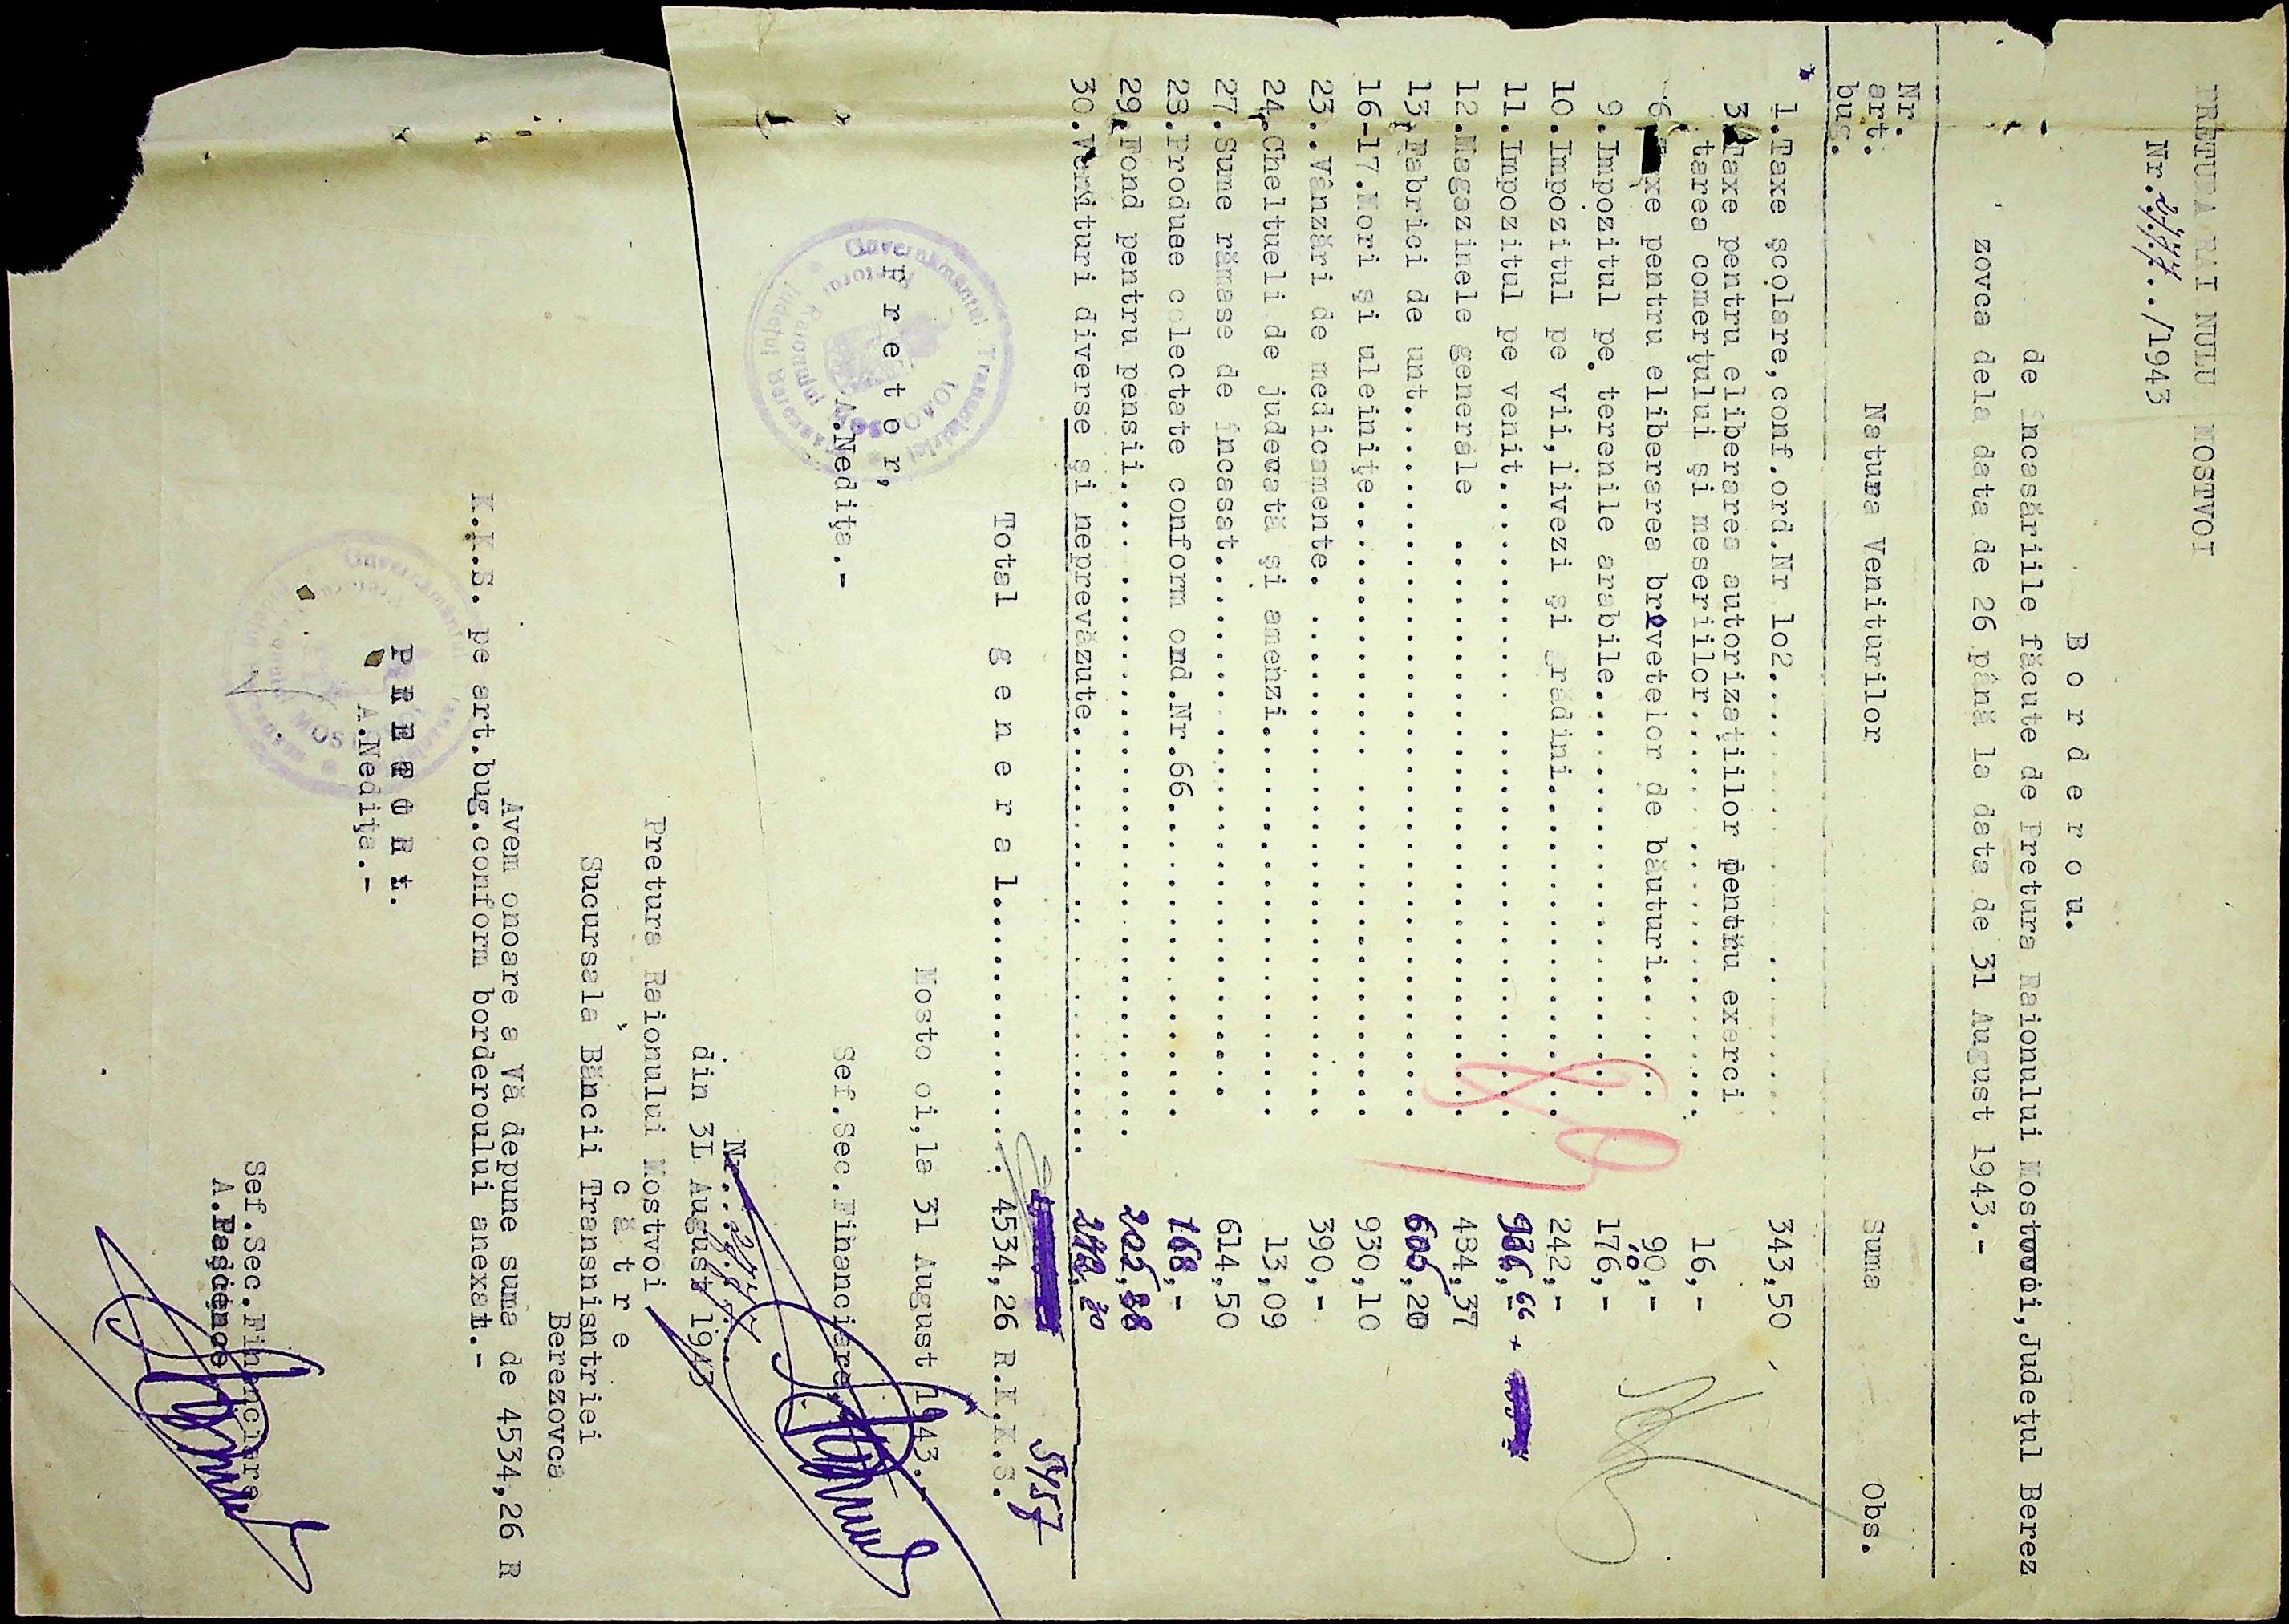 PRETURA RAI NULU MOSTVOI
Nr. /1943
B o r d e r o u.
de încasăriile făcute de Pretura Raionului Mostovoi,Județul Berez
zovca dela data de 26 până la data de 31 August 1943.-
Nr.
art. Natura Veniturilor Suma Obs.
bug.
1.Taxe școlare,conf.ord.Nr lo2. 343,50
3.Taxe pentru eliberarea autorizațiilor pentru exerci
tarea comerțului și meseriilor 16,-
6. xe pentru eliberarea brevetelor de băuturi. 90,-
9.Impozitul pe terenile arabile. 176,-
10.Impozitul pe vii,livezi și rădini. 242,-
11.Impozitul pe venit. 66 +
12.Magazinele generale 484,37
13.Fabrici de unt. 605,20
16-17.Mori și uleinițe. 930,10
23..Vânzări de medicamente. 390,-
24.Cheltueli de judecată și amenzi. 13,09
27.Sume rămase de încasat. 614,50
28.Produee colectate conform ord.Nr.66. 168,-
29.Fond pentru pensii. 205,38
30.Venituri diverse și neprevăzute.
5457
T o t a l g e n e r a l. 4534,26 R.K.K.S.
Mosto oi,la 31 August 1943.-
P r e t o r, Sef.Sec.Financiare,
A.Nedița.-
Guvernamantul Transnistriei
Județul Berezovca
Raionului
Nr.
din 3L August 1943
Pretura Raionului Mostvoi
c ă t r e
Sucursala Băncii Transnisntriei
Berezovca
Avem onoare a Vă depune suma de 4534,26 R
K.K.S. pe art.bug.conform borderoului anexat.-
P R E T O R.
A.Nedița.-
Guvernamantul
Sef.Sec.Financiare